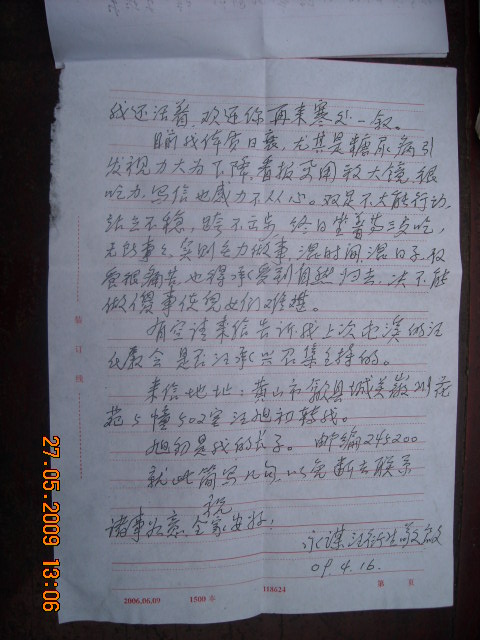 我还活着，欢迎你再来寒处一叙。
目前我体质日衰，尤其是糖尿病引
发视力大为下降，看报要用放大镜，很
吃力，写信也感力不从心。双足不大能行动，
站立不稳，跨不云步，终日坐着
无所事，实则无力做事，混时间，混日子，
很痛苦，也得承受到自然归去，决不能
做傻事使儿女们难堪。
有空请来信告诉我上次屯溪的汪
氏聚会是否汪承兴召集主持的。
来信地址：黄山市歙县城关徽州花
苑5幢502室汪旭初转我。
旭初是我的长子。邮编245200
就此简写几句，以免断去联系
祝
诸事如意，全家安好！
汪衍生敬啟
09.4.16.
装订线
2006.06.09 1500本 118624 第 页
27.05.2009 13:06